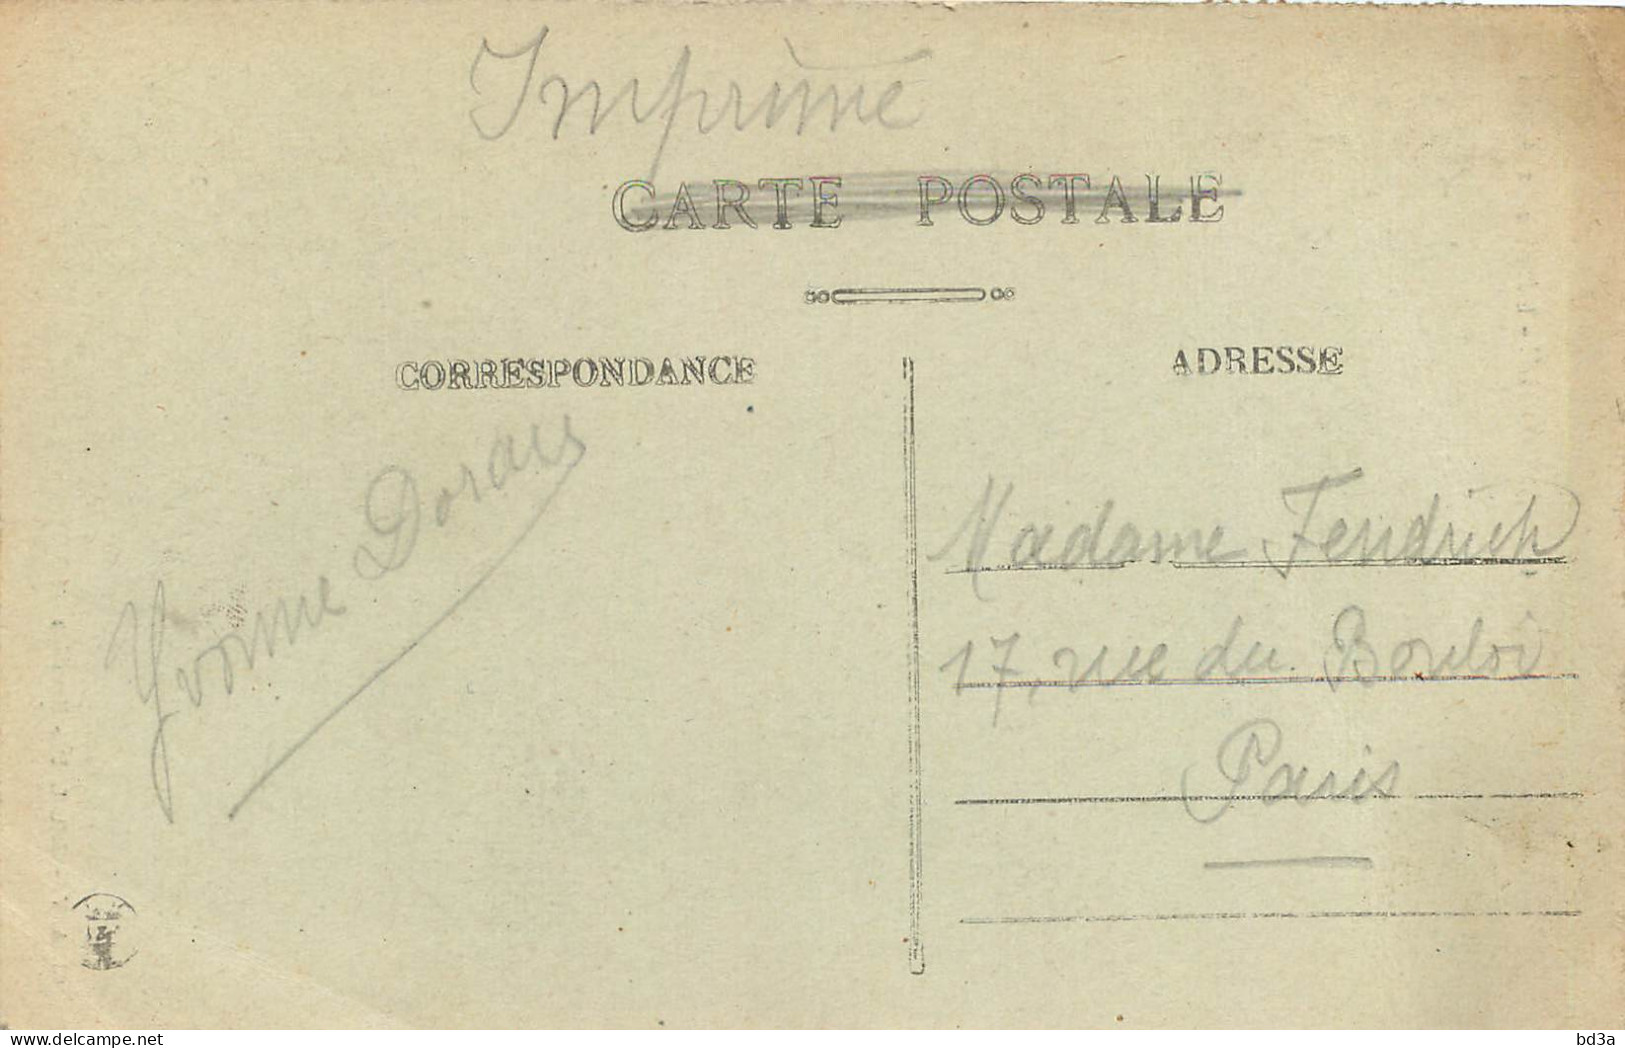 Imprimé
CARTE POSTALE
CORRESPONDANCE
ADRESSE
Yvonne Dorais
Madame Fendrich
17, rue du Bouloi
Paris
delcampe.net
bd3a